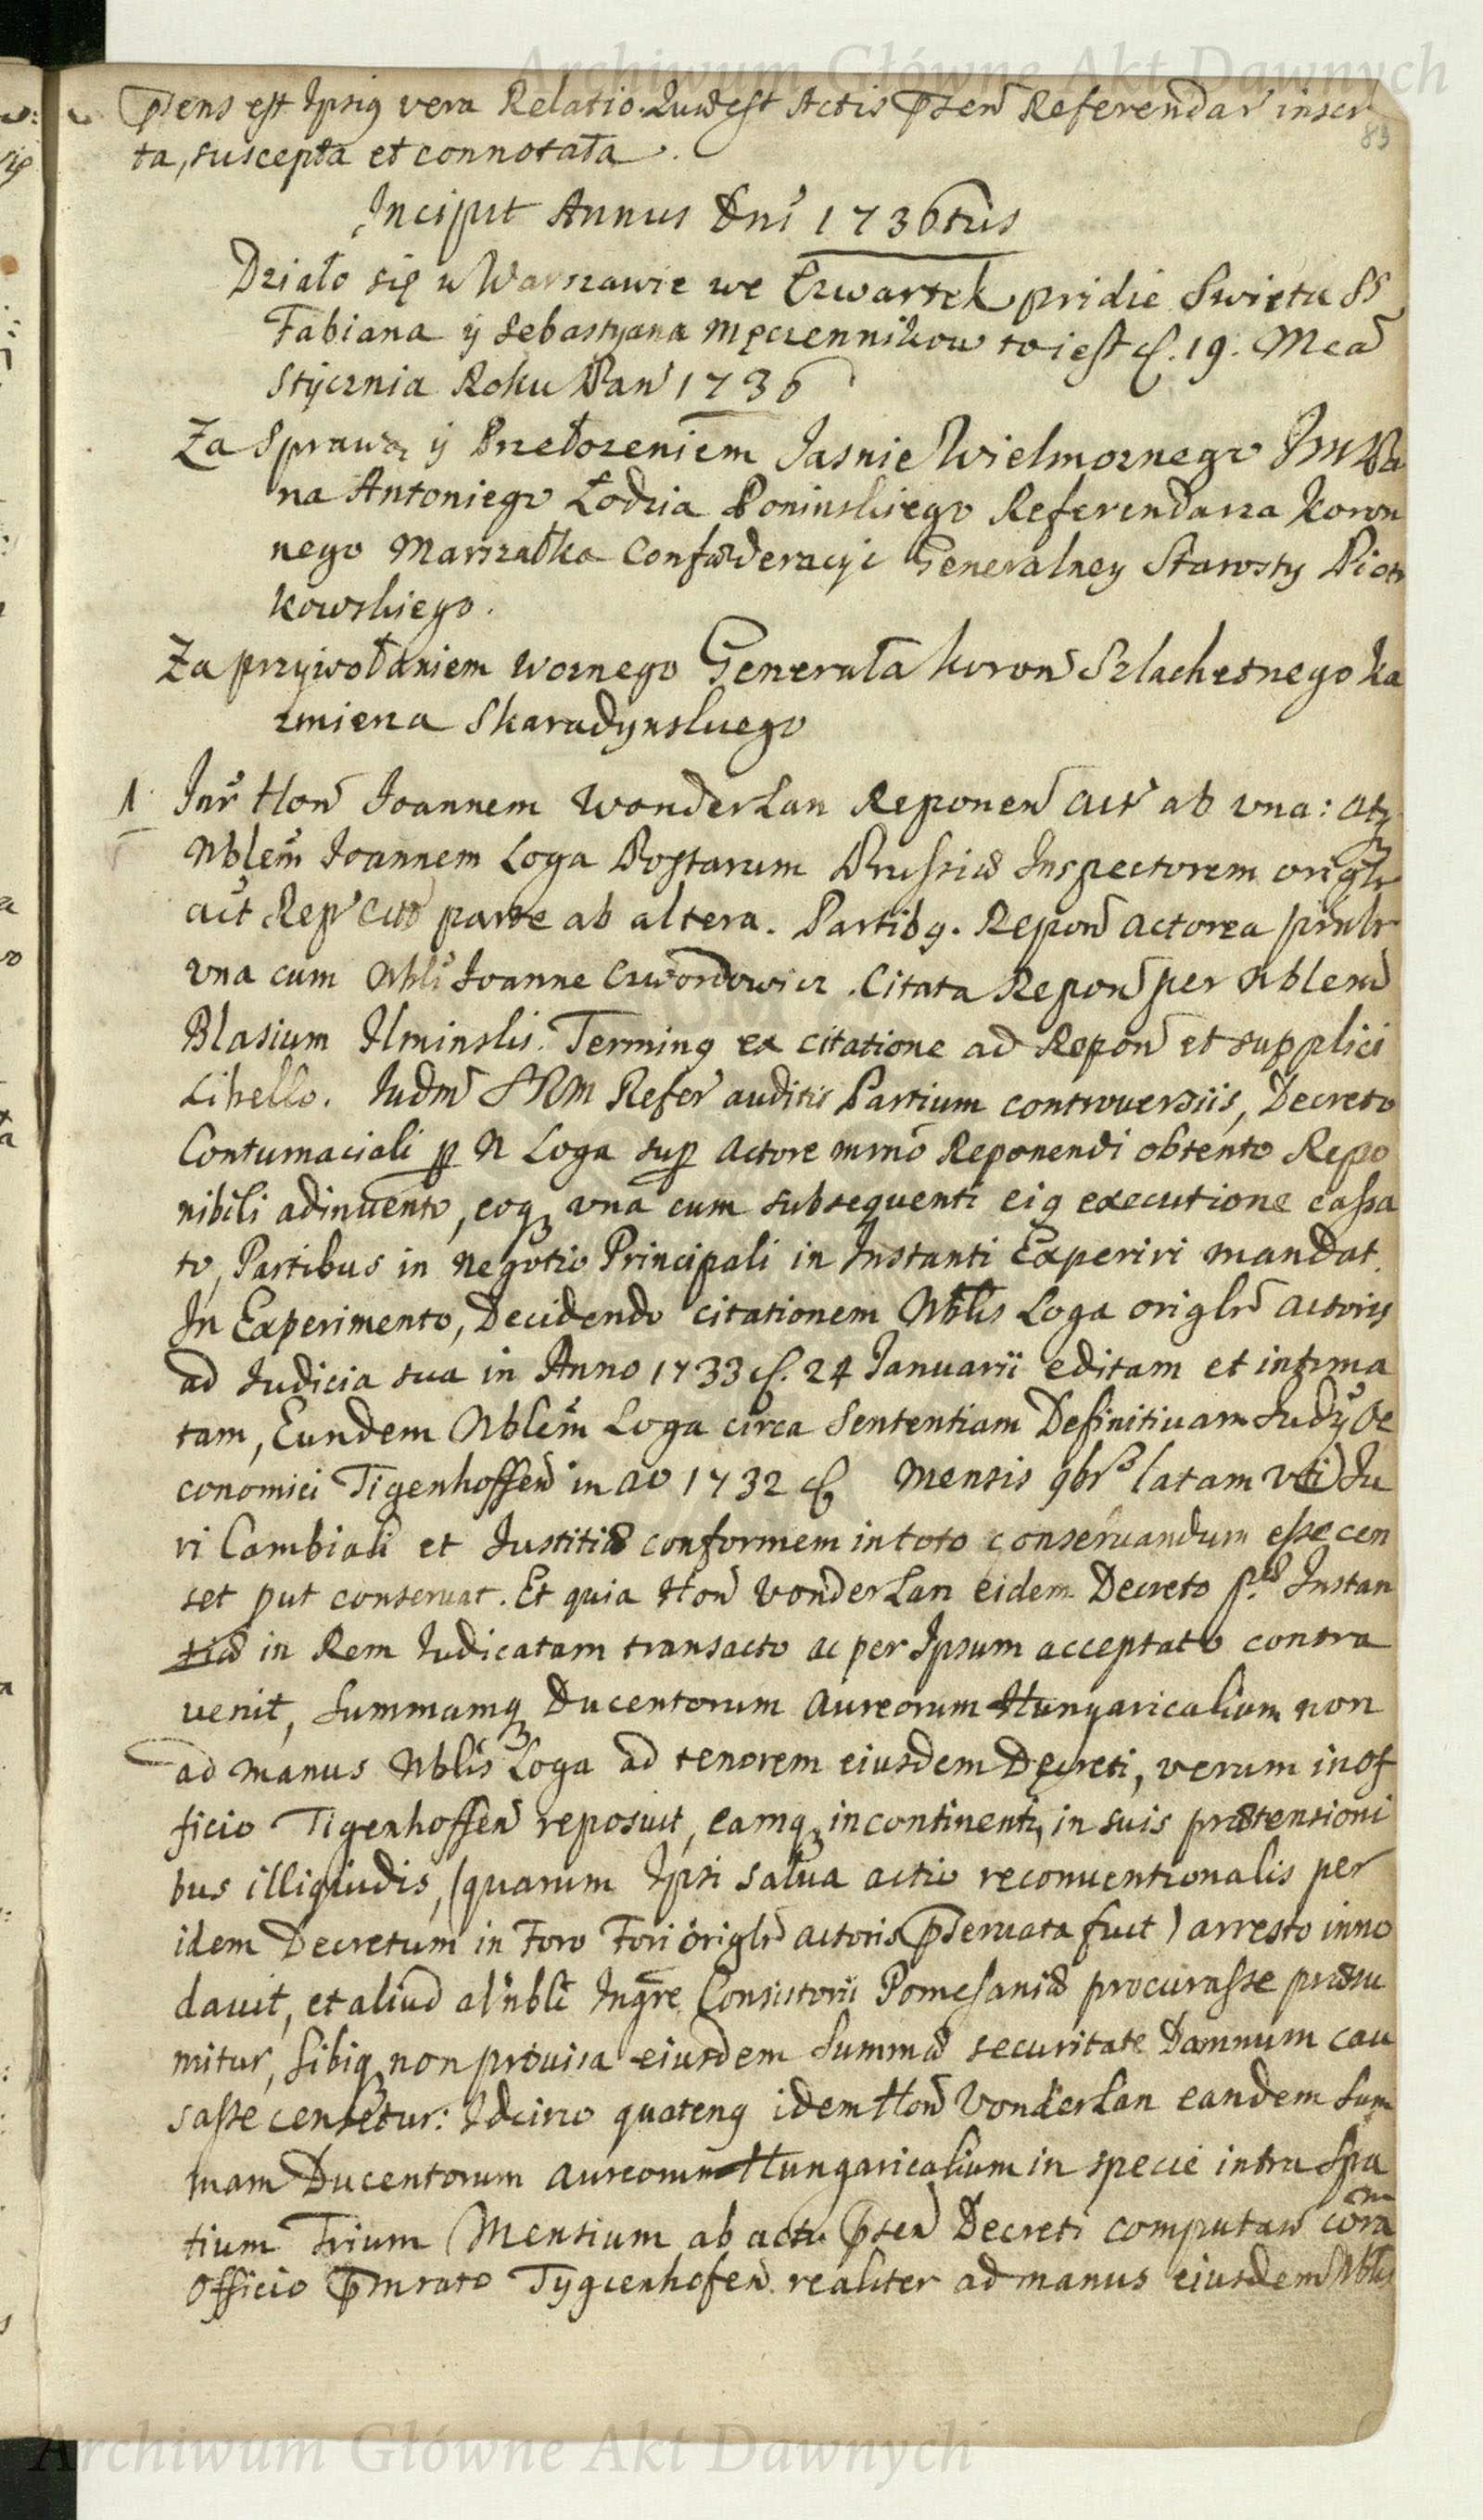 Archiwum Główne Akt Dawnych
pſens est Ipsig vera Relatio. Quæ est Actis pſen Referendar inscr
89
ta, suscepta et connotata.
Inciput Annus Dni 1736tus
Działo się w Warszawie we Czwartek pridie Swięta SS
Fabiana y Sebastyana Męczennikow to iest d. 19. Mca
Stycznia Roku Pan 1736
Za Sprawą y Przełozeniem Jasnie Wielmoznego Jm Pa
na Antoniego Łodzia Poninskiego Referendarza Koron
nego Marszałka Confæderacyi Generalney Starosty Piotr
kowskiego.
Za przywołaniem woznego Generała koron Szlachetnego Ka
zmierza Skaradynskiego
1 Inr Hon Joannem Wonderlan Reponen act ab vna: atq
Nblem Joannem Loga Postarum Prussiæ Inspectorem origlr
act Rep cito parte ab altera. Partibg. Repon actorea prnlr
vna cum Nbli Joanne Czwordowicz. Citata Repon per Nblem
Blasium Ilminski. Terming ex citatione ad Repon et supplici
Libello. Judm SRM Refer auditis Partium controuersiis, Decreto
Contumaciali p N Loga sup Actore mmo Reponendi obtento Repo
nibili adinuento, eoq vna cum subsequenti eig executione cassa
to, Partibus in negotio Principali in Instanti Experiri mandat.
In Experimento, Decidendo citationem Nblis Loga origlr actoris
ad Judicia sua in Anno 1733 d. 24 Januarii editam et intima
tam, Eundem Nblem Loga circa Sententiam Definitiuam Judy Oe
conomici Tigenhoffen in ao 1732 d Mensis 9br latam vti Ju
ri Cambiali et Justitiæ conformem in toto conseruandum esse cen
set put conseruat. Et quia Hon Vonderlan eidem Decreto p.æ Instan
tiæ in Rem Judicatam transacto ac per Ipsum acceptato contra
uenit, Summamq Ducentorum Aureorum Hungaricalium non
ad manus Nblis Loga ad tenorem eiusdem Decreti, verum in of
ficio Tigenhoffen reposuit, eamq incontinenti, in suis prætensioni
bus illiquidis, (quarum Ipsi salua actio reconuentionalis per
idem Decretum in Foro Fori origlr actoris pſeruata fuit) arresto inno
dauit, et aliud al nbli Ingre Consistorii Pomesaniæ procurasse præsu
mitur, sibiq non prouisa eiusdem Summæ securitate Damnum cau
sasse censetur: Idcirco quateng idem Hon Vonderlan eandem Sum
mam Ducentorum aureorum Hungaricalium in specie intra Spa
tium Trium Mensium ab actu pſen Decreti computan coram
Officio pmrato Tygienhofen realiter ad manus eiusdem Nblis
Archiwum Główne Akt Dawnych